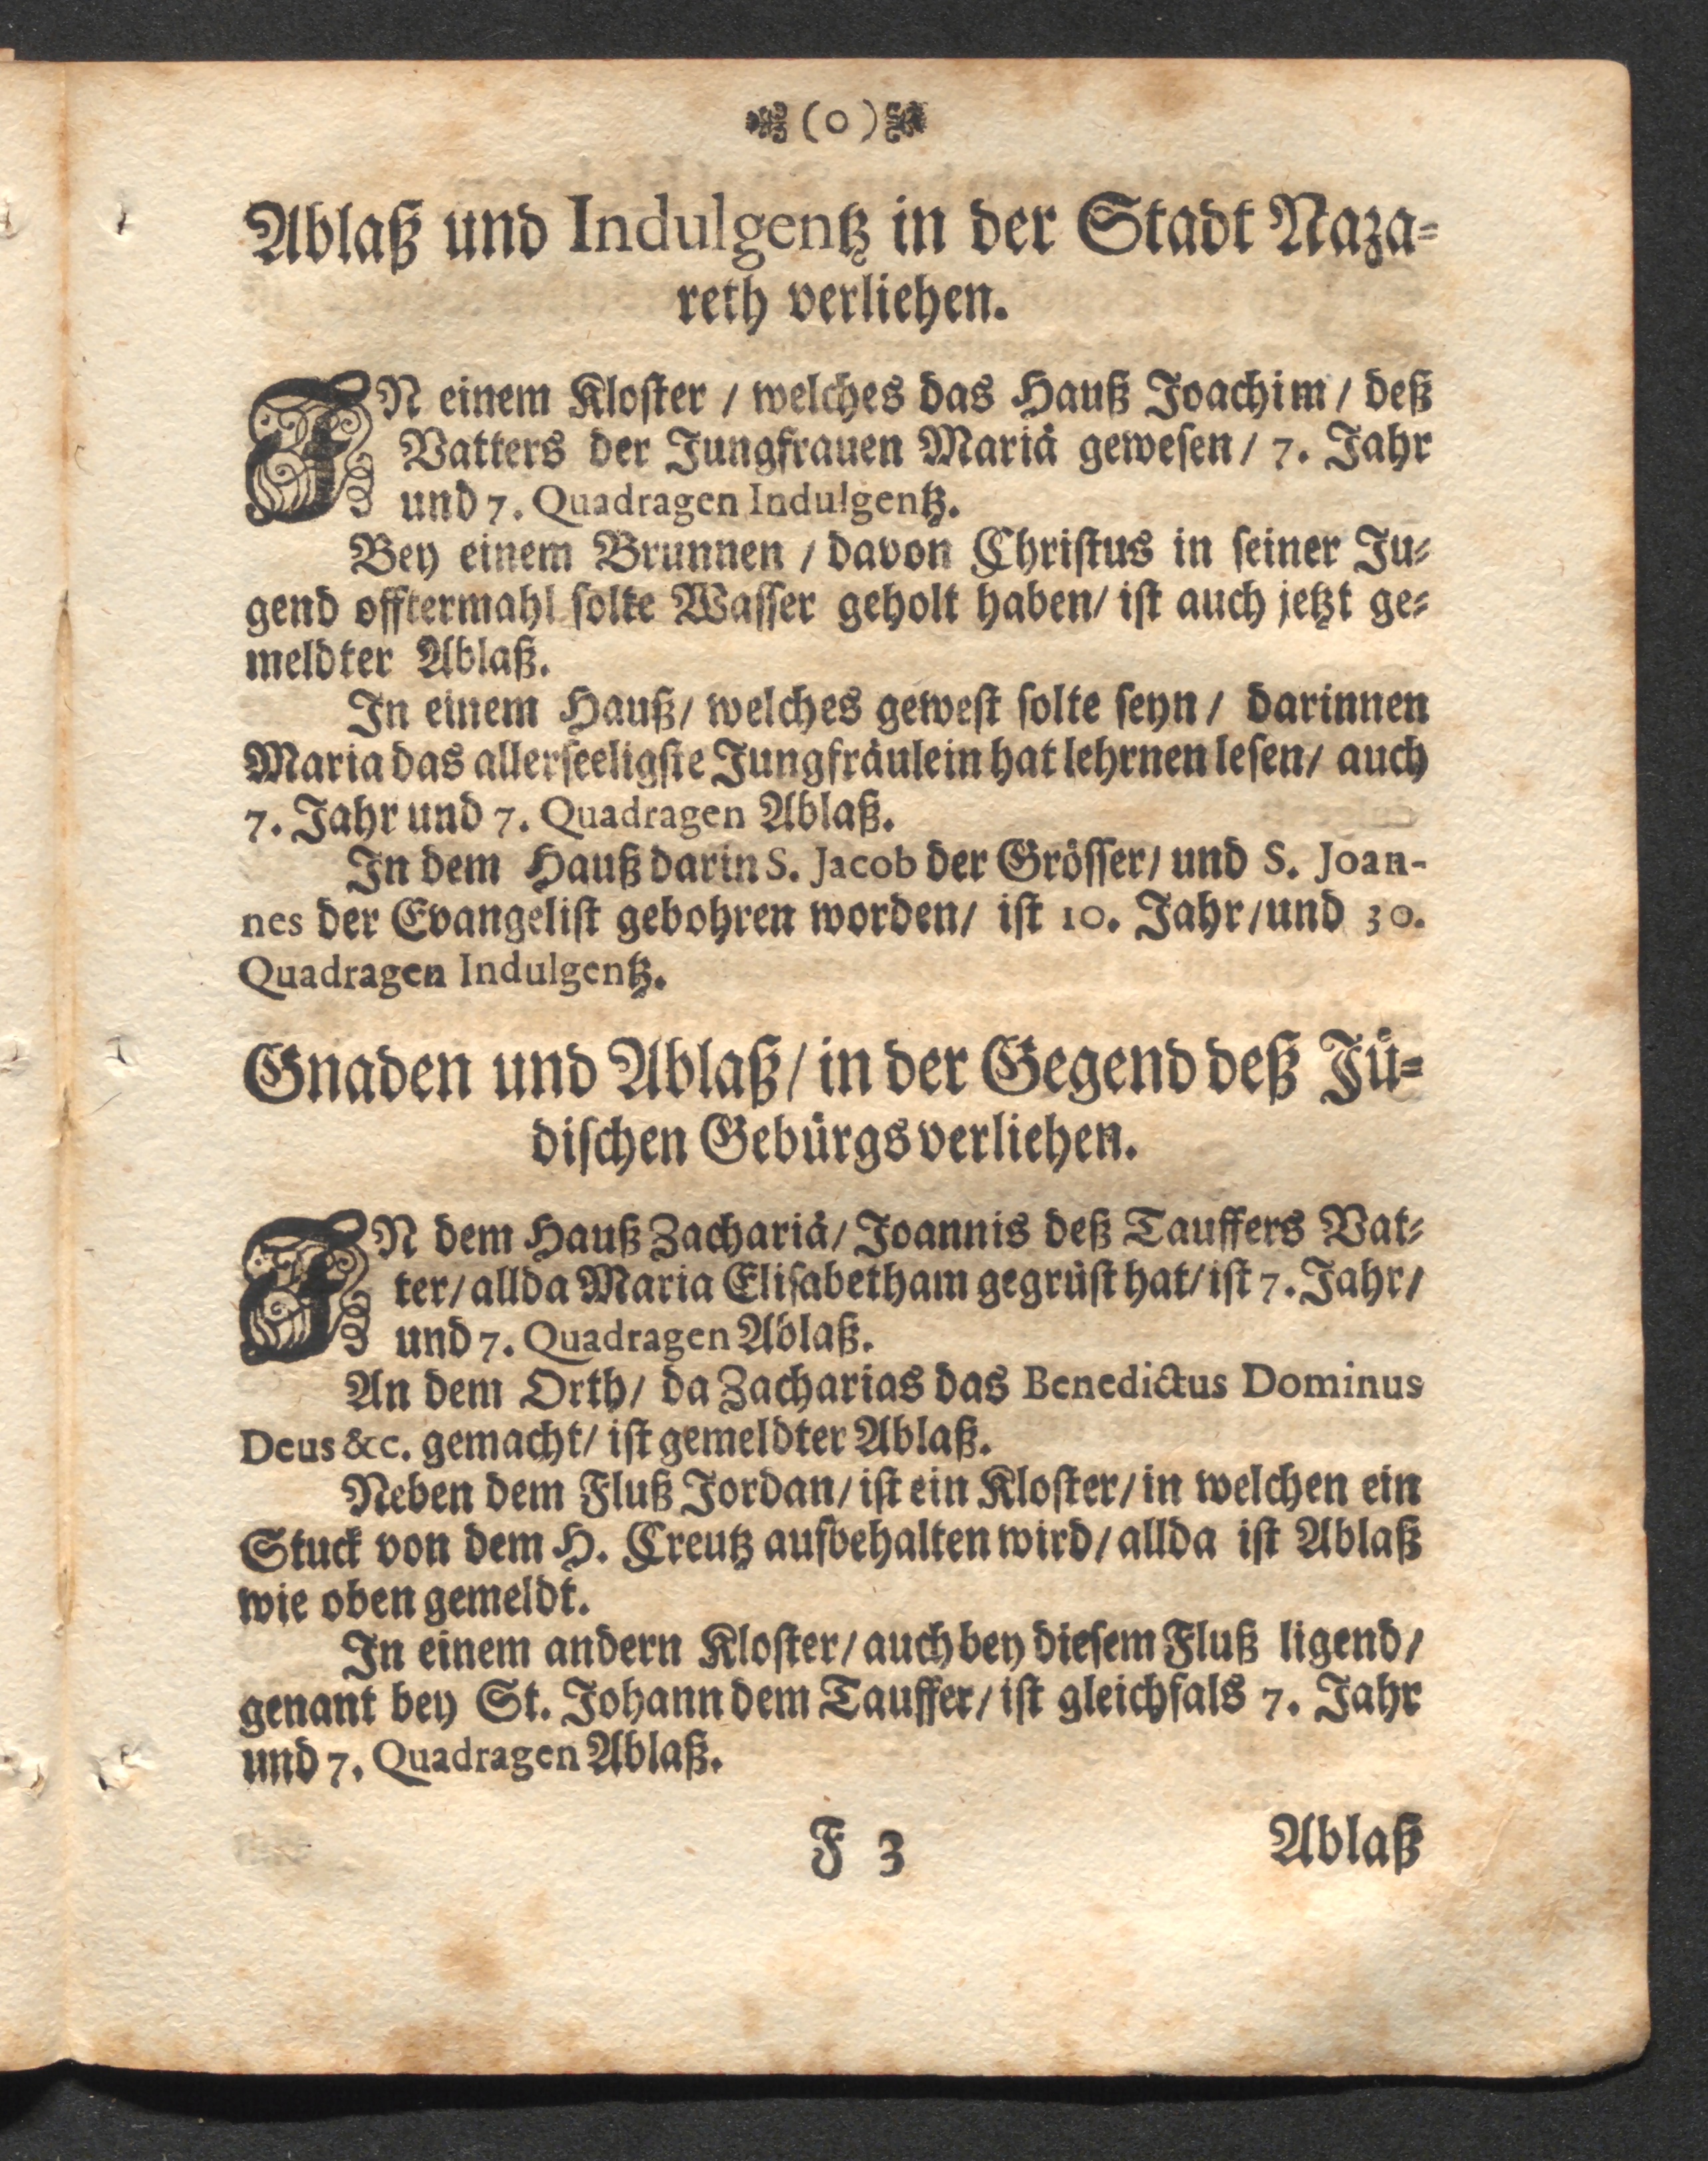 (o)
Ablaß und Indulgentz in der Stadt Naza-
reth verliehen.
IN einem Kloster / welches das Hauß Joachim / deß
Vatters der Jungfrauen Mariä gewesen / 7. Jahr
und 7. Quadragen Indulgentz.
Bey einem Brunnen / davon Christus in seiner Ju-
gend offtermahl solte Wasser geholt haben / ist auch jetzt ge-
meldter Ablaß.
In einem Hauß / welches gewest solte seyn / darinnen
Maria das allerseeligste Jungfräulein hat lehrnen lesen / auch
7. Jahr und 7. Quadragen Ablaß.
In dem Hauß darin S. Jacob der Grösser / und S. Joan-
nes der Evangelist gebohren worden / ist 10. Jahr / und 30.
Quadragen Indulgentz.
Gnaden und Ablaß / in der Gegend deß Jü-
dischen Gebürgs verliehen.
IN dem Hauß Zachariä / Joannis deß Tauffers Vat-
ter / allda Maria Elisabetham gegrüst hat / ist 7. Jahr /
und 7. Quadragen Ablaß.
An dem Orth / da Zacharias das Benedictus Dominus
Deus &c. gemacht / ist gemeldter Ablaß.
Neben dem Fluß Jordan / ist ein Kloster / in welchen ein
Stuck von dem H. Creutz aufbehalten wird / allda ist Ablaß
wie oben gemeldt.
In einem andern Kloster / auch bey diesem Fluß ligend /
genant bey St. Johann dem Tauffer / ist gleichfals 7. Jahr
und 7. Quadragen Ablaß.
F 3 Ablaß